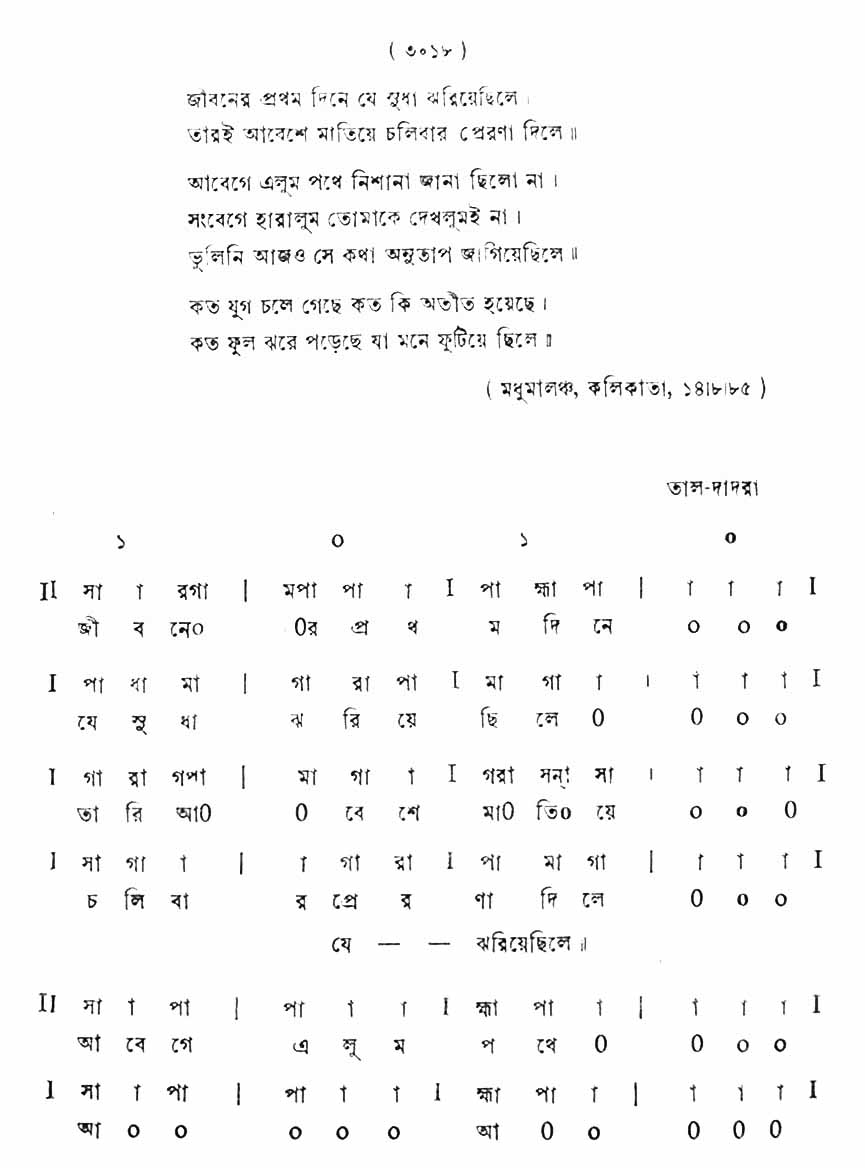 ( ৩০১৮ )
জীবনের প্রথম দিনে যে সুধা ঝরিয়েছিলে।
তারই আবেশে মাতিয়ে চলিবার প্রেরণা দিলে॥
আবেগে এলুম পথে নিশানা জানা ছিলো না।
সংবেগে হারালুম তোমাকে দেখলুমই না।
ভুলিনি আজও সে কথা অনুতাপ জাগিয়েছিলে॥
কত যুগ চলে গেছে কত কি অতীত হয়েছে।
কত ফুল ঝরে পড়েছে যা মনে ফুটিয়ে ছিলে॥
( মধুমালঞ্চ, কলিকাতা, ১৪।৮।৮৫ )
তাল-দাদরা
১ ০ ১ ০
II সা া রগা | মপা পা া I পা হ্মা পা | া া া I
জী ব নে০ ০র প্র থ ম দি নে ০ ০ ০
I পা ধা মা | গা রা পা I মা গা া । া া া I
যে সু ধা ঝ রি য়ে ছি লে ০ ০ ০ ০
I গা রা গপা | মা গা া I গরা সন্‌া সা । া া া I
তা রি আ০ ০ বে শে মা০ তি০ য়ে ০ ০ ০
I সা গা া | া গা রা I পা মা গা | া া া I
চ লি বা র প্রে র ণা দি লে ০ ০ ০
যে — — ঝরিয়েছিলে॥
II সা া পা | পা া া I হ্মা পা া | া া া I
আ বে গে এ লু ম প থে ০ ০ ০ ০
I সা া পা | পা া া I হ্মা পা া | া া া I
আ ০ ০ ০ ০ ০ আ ০ ০ ০ ০ ০